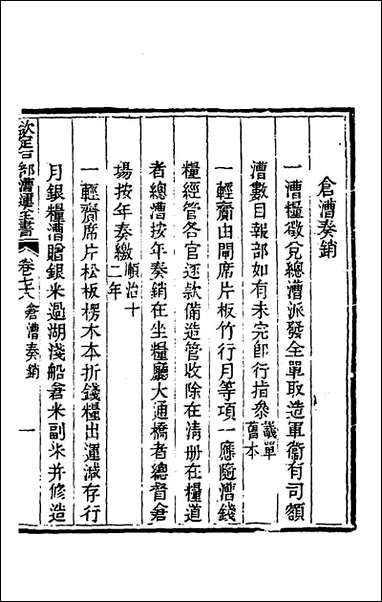 倉漕奏銷
一漕糧徵兌總漕派發全單取造軍衛有司額
漕數目報部如有未完卽行指叅議單舊本
一輕齎由閘席片板竹行月等項一應隨漕錢
糧經管各官逐款備造管收除在淸册在糧道
者總漕按年奏銷在坐糧廳大通橋者總督倉
場按年奏繳順治十二年
一輕齎席片松板楞木本折錢糧出運減存行
月銀糧漕贈銀米過湖淺船倉米副米幷修造
欽定戶部漕運全書 卷七六 倉漕奏銷 一